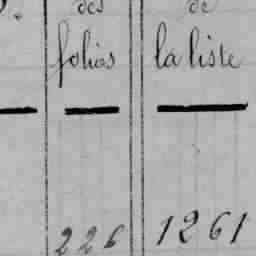 des de
folios la liste
226 1261